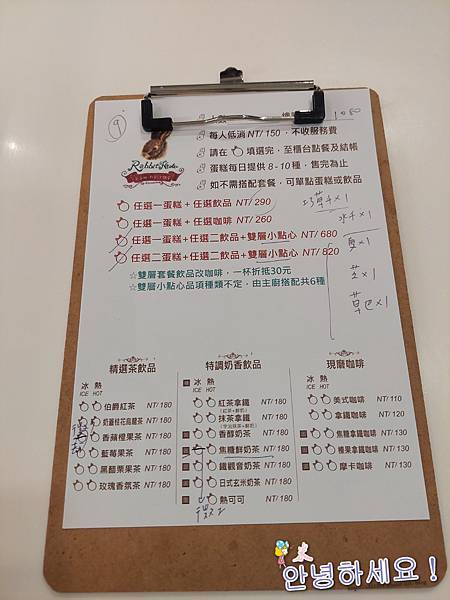 9
1080
每人低消 NT/ 150，不收服務費
請在 填選完，至櫃台點餐及結帳
蛋糕每日提供 8 - 10種，售完為止
如不需搭配套餐，可單點蛋糕或飲品
任選一蛋糕 + 任選飲品 NT/ 290
任選一蛋糕 + 任選咖啡 NT/ 260
任選一蛋糕 + 任選二飲品+雙層小點心 NT/ 680
任選二蛋糕 + 任選二飲品+雙層小點心 NT/ 820
☆雙層套餐飲品改咖啡，一杯折抵30元
☆雙層小點心品項種類不定，由主廚搭配共6種
精選茶飲品
冰 熱
ICE HOT
伯爵紅茶 NT/ 180
奶蓋桂花烏龍茶 NT/ 180
香蘋橙果茶 NT/ 180
藍莓果茶 NT/ 180
黑醋栗果茶 NT/ 180
玫瑰香氛茶 NT/ 180
特調奶香飲品
冰 熱
ICE HOT
紅茶拿鐵 NT/ 180
(紅茶+鮮奶)
抹茶拿鐵 NT/ 180
香醇奶茶 NT/ 180
焦糖鮮奶茶 NT/ 180
鐵觀音奶茶 NT/ 180
日式玄米奶茶 NT/ 180
熱可可 NT/ 180
現磨咖啡
冰 熱
ICE HOT
美式咖啡 NT/110
拿鐵咖啡 NT/120
焦糖拿鐵咖啡 NT/130
榛果拿鐵咖啡 NT/130
摩卡咖啡 NT/130
안녕하세요！